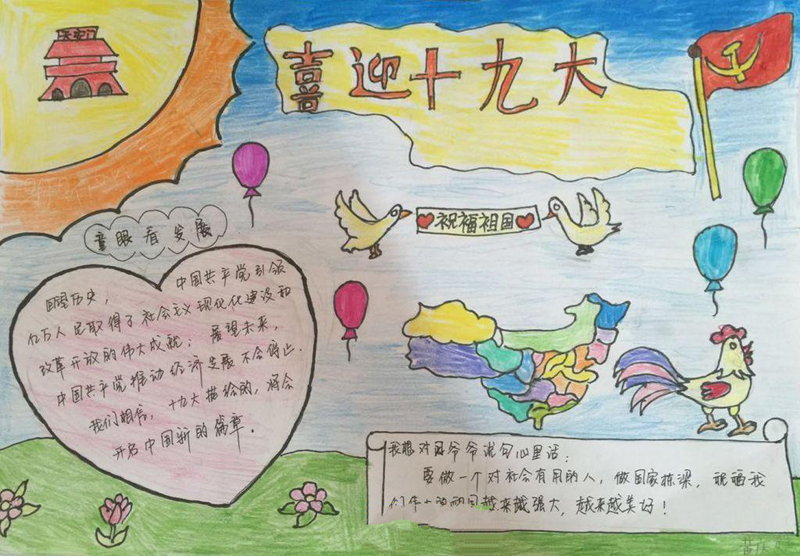 天安门
喜迎十九大
祝福祖国
童眼看发展
中国共产党引领
回望历史，
亿万人民取得了社会主义现代化建设和
改革开放的伟大成就；展望未来，
中国共产党推动经济发展不会停止.
我们相信，十九大描绘的，将会
开启中国新的篇章.
我想对习爷爷说句心里话：
要做一个对社会有用的人，做国家栋梁，祝福我
们伟大的祖国越来越强大，越来越美好！